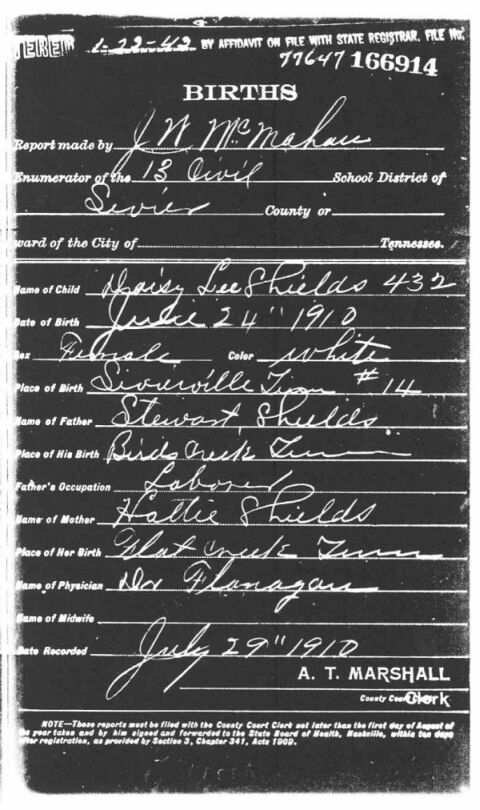 TERED 1-22-42 BY AFFIDAVIT ON FILE WITH STATE REGISTRAR. FILE No.
77647 166914
BIRTHS
Report made by J W McMahan
Enumerator of the 13 Civil School District of
Sevier County or
ward of the City of Tennessee.
Name of Child Daisy Lee Shields 432
Date of Birth June 24" 1910
Sex Female Color White
Place of Birth Sevierville Tenn #14
Name of Father Stewart Shields
Place of His Birth Birds Creek Tenn
Father's Occupation Laborer
Name of Mother Hattie Shields
Place of Her Birth Flat Creek Tenn
Name of Physician Dr Flanagan
Name of Midwife
Date Recorded July 29" 1910
A. T. MARSHALL
County Court Clerk
NOTE—These reports must be filed with the County Court Clerk not later than the first day of August of
the year taken and by him signed and forwarded to the State Board of Health, Nashville, within ten days
after registration, as provided by Section 3, Chapter 341, Acts 1909.